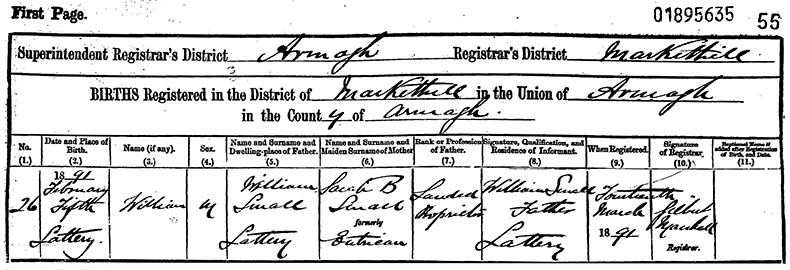 First Page. 01895635 55
Superintendent Registrar's District Armagh Registrar's District Markethill
BIRTHS Registered in the District of Markethill in the Union of Armagh
in the County of Armagh.
No. (1.)
Date and Place of Birth. (2.)
Name (if any). (3.)
Sex. (4.)
Name and Surname and Dwelling-place of Father. (5.)
Name and Surname and Maiden Surname of Mother (6.)
Rank or Profession of Father. (7.)
Signature, Qualification, and Residence of Informant. (8.)
When Registered. (9.)
Signature of Registrar. (10.)
Baptismal Name if added after Registration of Birth, and Date. (11.)
26
1891
February
Fifth
Lattery.
William
M
William
Small
Lattery
Sarah B
Small
formerly
Landed
Proprietor
William Small
Father
Lattery
Fourteenth
March
1891
Gilbert
Registrar.